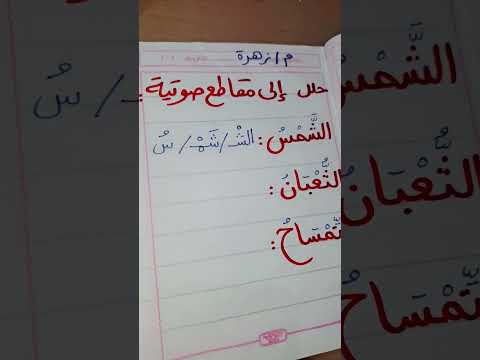 م / زهرة
حلل إلى مقاطع صوتية:
الشَّمْسُ: الشْـ/ شَمْـ/ سُ
الثُّعْبَانُ:
تِّمْسَاحُ: